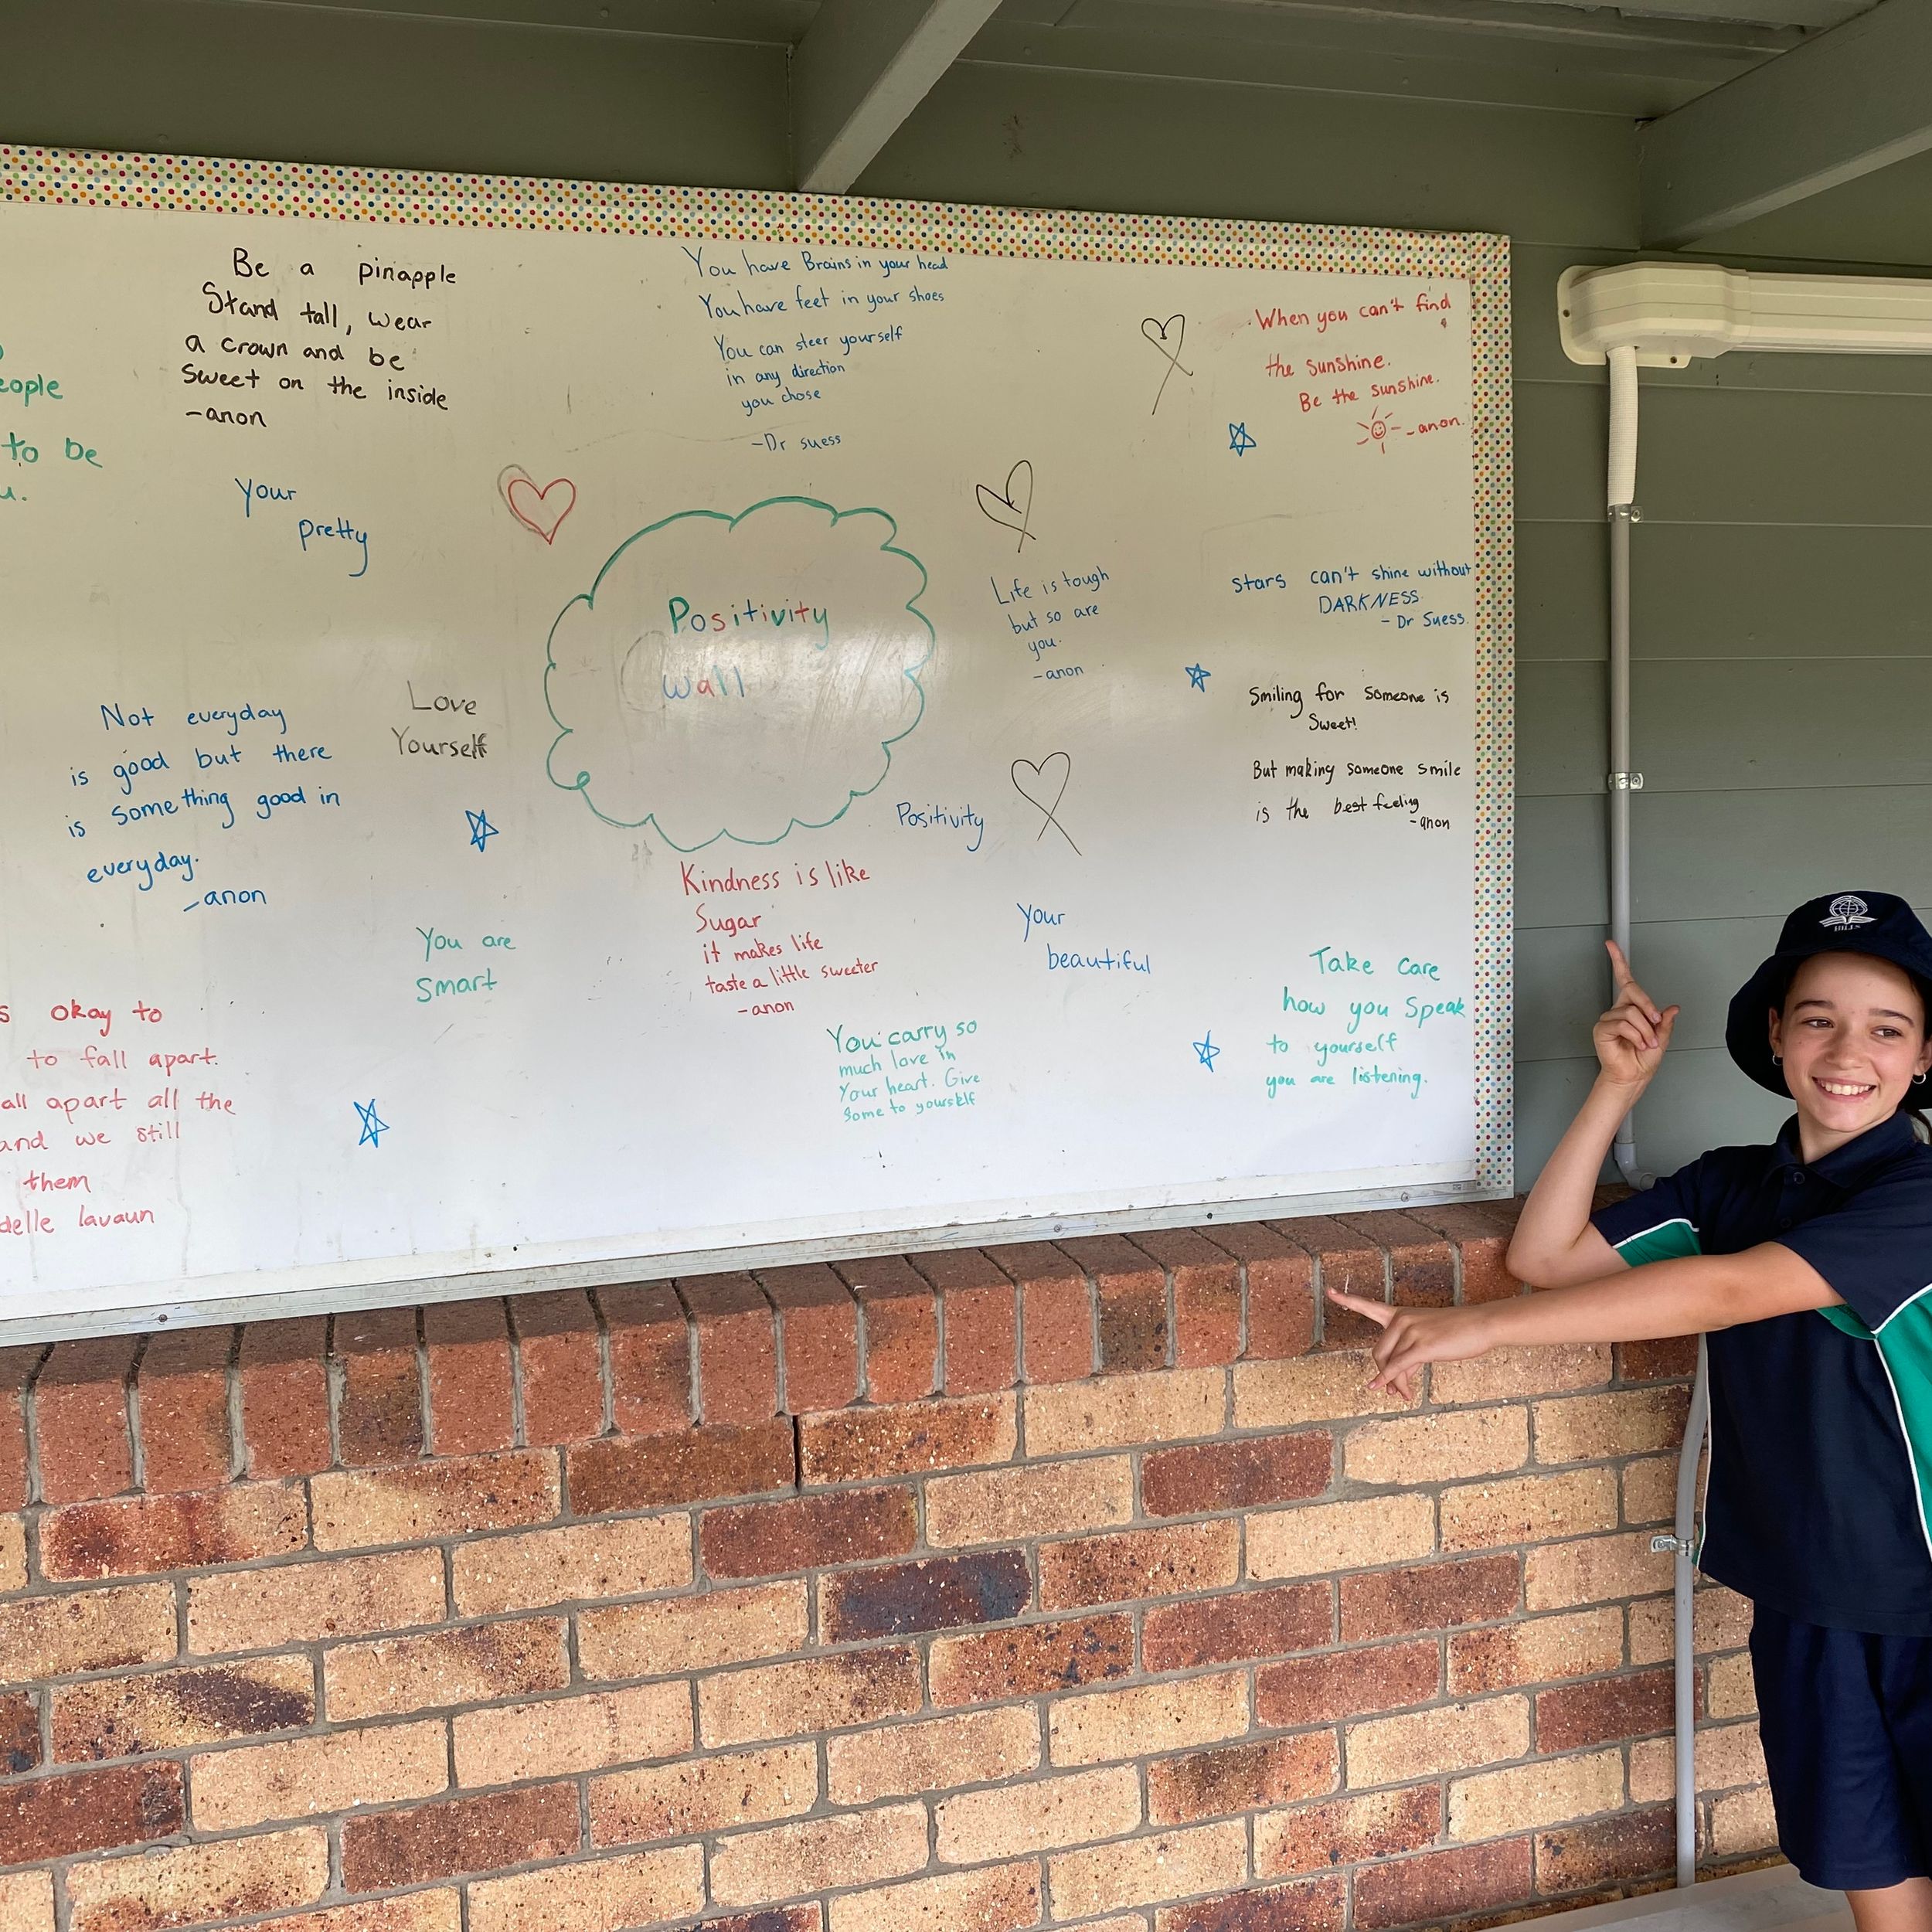 eople
to be
u.
Be a pinapple
Stand tall, wear
a crown and be
Sweet on the inside
-anon
You have Brains in your head
You have feet in your shoes
You can steer yourself
in any direction
you chose
-Dr suess
When you can't find
the sunshine.
Be the sunshine.
-anon.
Your
pretty
Positivity
wall
Life is tough
but so are
you.
-anon
stars can't shine without
DARKNESS
- Dr Suess.
Not everyday
is good but there
is something good in
everyday.
-anon
Love
Yourself
Positivity
Smiling for someone is
Sweet!
But making someone smile
is the best feeling
-anon
You are
smart
Kindness is like
Sugar
it makes life
taste a little sweeter
-anon
Your
beautiful
You carry so
much love in
Your heart. Give
Some to yourself
Take care
how you speak
to yourself
you are listening.
s okay to
to fall apart.
all apart all the
and we still
them
delle lavaun
HILLS